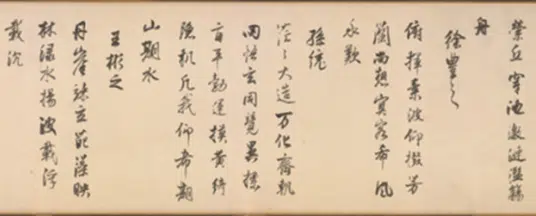 縈丘穿池激湍連濫觴
舟
徐豐之
俯揮素波仰掇芳
蘭尚想嘉客希風
永歎
孫統
茫〻大造万化齊軌
罔悟玄同競異標
旨平勃運謨黄綺
隱机凡我仰希期
山期水
王彬之
丹崖竦立葩藻映
林淥水揚波載浮
載沉